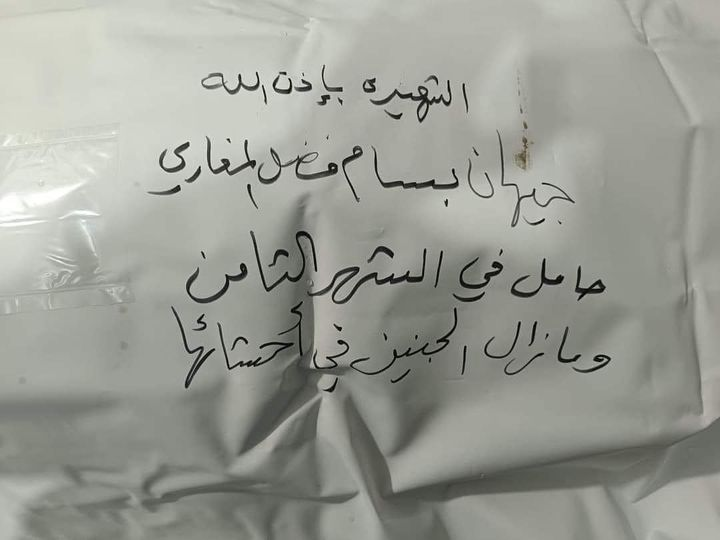 الشهيدة بإذن الله
جيهان بسام فضل المغاري
حامل في الشهر الثامن
ومازال الجنين في أحشائها